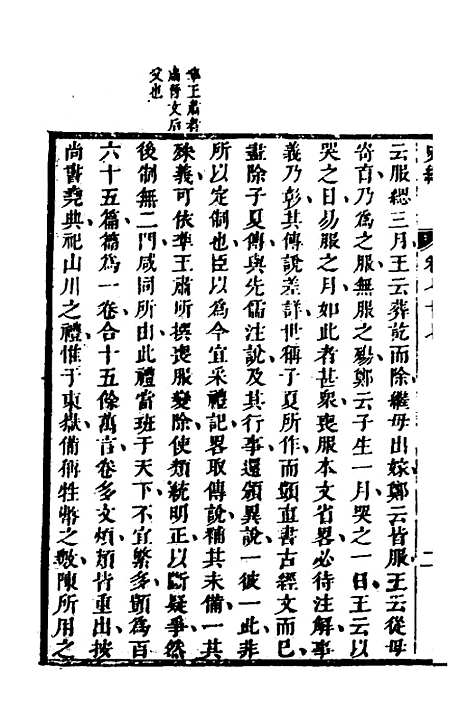 準王肅者
肅晉文后
父也
史緯 卷七十七 二
云服緦三月王云葬訖而除繼母出嫁鄭云皆服王云從母
寄育乃為之服無服之殤鄭云子生一月哭之一日王云以
哭之日易服之月如此者甚衆喪服本文省畧必待注解事
義乃彰其傳說差詳世稱子夏所作而顗直書古經文而已
盡除子夏傳與先儒注說及其行事還頒異說一彼一此非
所以定制也臣以為今宜采禮記畧取傳說補其未備一其
殊義可依準王肅所撰喪服變除使類統明正以斷疑爭然
後制無二門咸同所由此禮當班于天下不宜繁多顗為百
六十五篇篇為一卷合十五餘萬言卷多文煩類皆重出按
尚書堯典祀山川之禮惟于東嶽備稱牲幣之數陳所用之